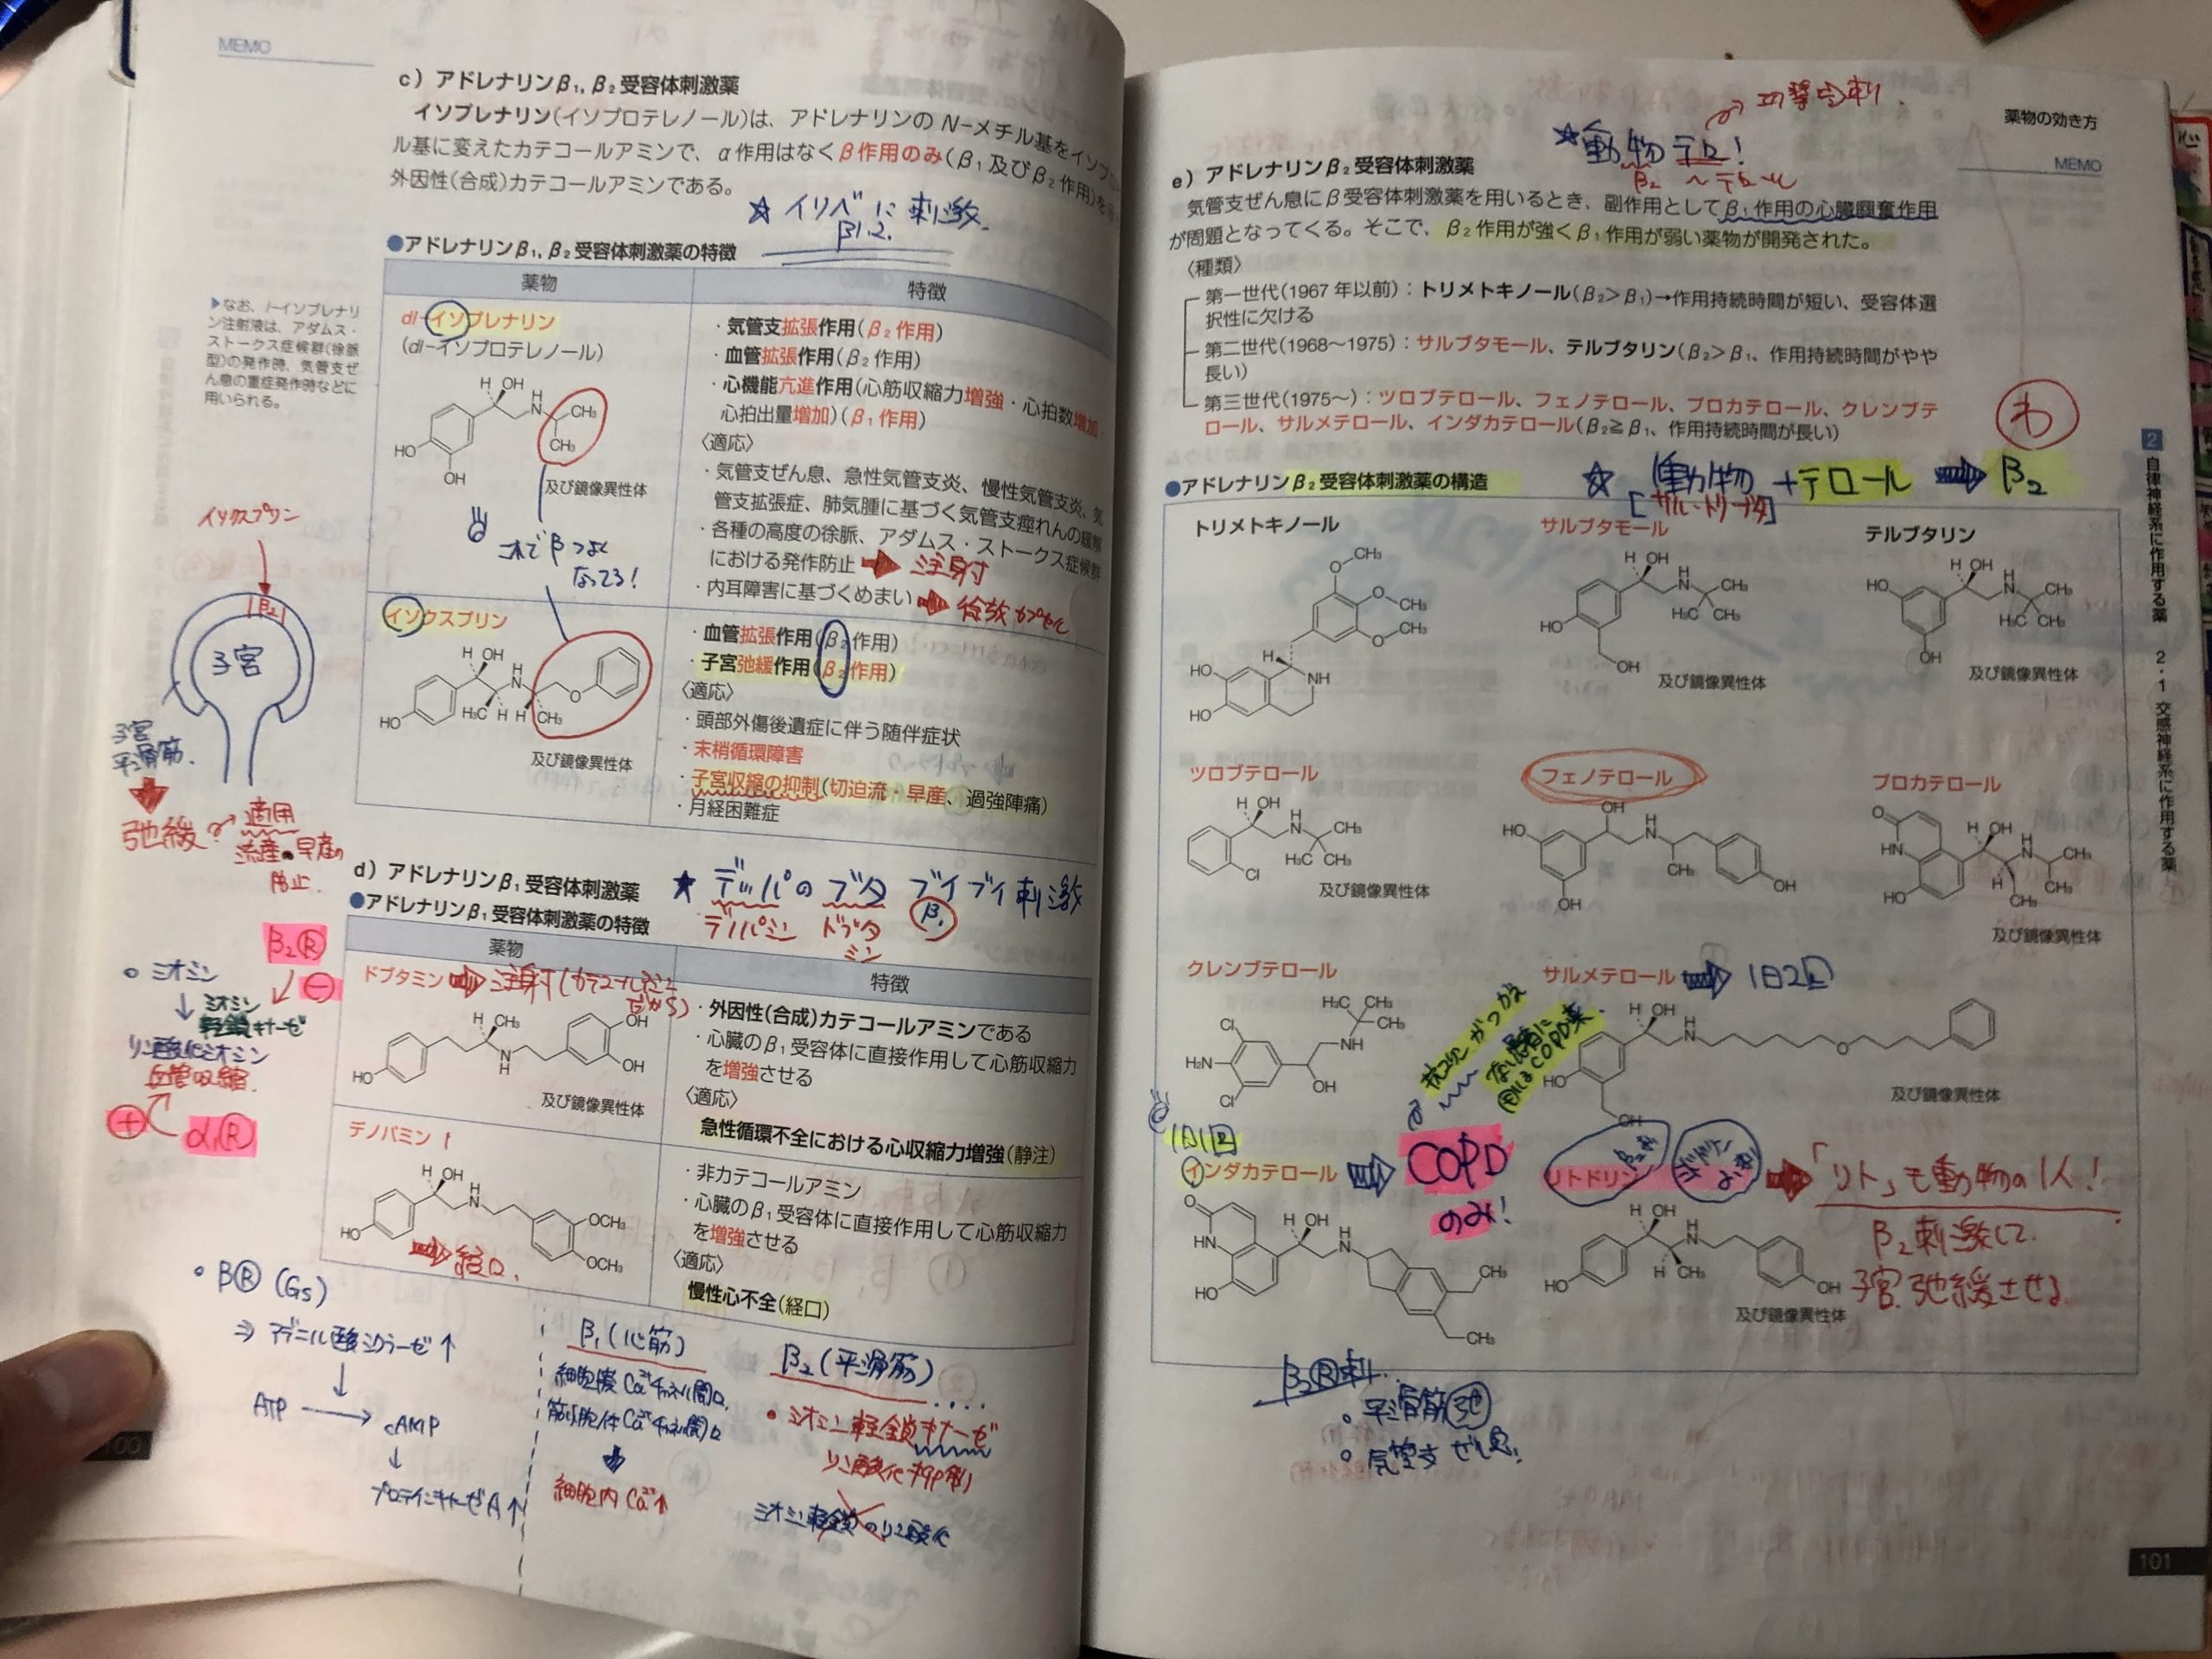 MEMO
c）アドレナリンβ₁, β₂受容体刺激薬
イソプレナリン(イソプロテレノール)は、アドレナリンの N-メチル基をイソプロ
ル基に変えたカテコールアミンで、α作用はなくβ作用のみ(β₁及びβ₂作用)を
外因性(合成)カテコールアミンである。
☆ イリベに刺激
β1.2.
●アドレナリンβ₁, β₂受容体刺激薬の特徴
薬物
特徴
▶なお、l-イソプレナリ
ン注射液は、アダムス・
ストークス症候群(徐脈
型)の発作時、気管支ぜ
ん息の重症発作時などに
用いられる。
dl-イソプレナリン
(dl-イソプロテレノール)
H OH
H
N
CH₃
CH₃
HO
OH
及び鏡像異性体
・気管支拡張作用(β₂作用)
・血管拡張作用(β₂作用)
・心機能亢進作用(心筋収縮力増強・心拍数増加・
心拍出量増加)(β₁作用)
〈適応〉
・気管支ぜん息、急性気管支炎、慢性気管支炎、気
管支拡張症、肺気腫に基づく気管支痙れんの緩解
・各種の高度の徐脈、アダムス・ストークス症候群
における発作防止
注射
・内耳障害に基づくめまい
徐放カプセル
これでβつよく
なってる!
イソクスプリン
β₂
子宮
子宮
平滑筋.
弛緩
適用
流産・早産の
防止.
イソクスプリン
H OH
H
N
O
HO
H₃C H H CH₃
及び鏡像異性体
・血管拡張作用(β₂作用)
・子宮弛緩作用(β₂作用)
〈適応〉
・頭部外傷後遺症に伴う随伴症状
・末梢循環障害
・子宮収縮の抑制(切迫流・早産、過強陣痛)
・月経困難症
d）アドレナリンβ₁受容体刺激薬
★ デッパの ブタ ブイブイ刺激
デノパミン ドブタ
ミン
β₁
●アドレナリンβ₁受容体刺激薬の特徴
薬物
特徴
ドブタミン
注射(カテコール
だから)
H CH₃
OH
OH
N
H
HO
及び鏡像異性体
・外因性(合成)カテコールアミンである
・心臓のβ₁受容体に直接作用して心筋収縮力
を増強させる
〈適応〉
急性循環不全における心収縮力増強(静注)
デノパミン
H OH
H
N
OCH₃
OCH₃
HO
経口.
・非カテコールアミン
・心臓のβ₁受容体に直接作用して心筋収縮力
を増強させる
〈適応〉
慢性心不全(経口)
β₂Ⓡ
ミオシン
⊖
ミオシン
軽鎖キナーゼ
リン酸化ミオシン
血管収縮.
⊕
α₁Ⓡ
βⓇ (Gs)
⇒ アデニル酸シクラーゼ↑
↓
ATP → cAMP
↓
プロテインキナーゼA↑
β₁(心筋)
細胞膜Ca²⁺チャネル開口
筋小胞体Ca²⁺チャネル開口
細胞内Ca²⁺↑
β₂(平滑筋)
・ミオシン軽鎖キナーゼ
リン酸化 抑制
ミオシン軽鎖のリン酸化
100
薬物の効き方
MEMO
★動物テロ!
β₂ 〜テロール
e）アドレナリンβ₂受容体刺激薬
気管支ぜん息にβ受容体刺激薬を用いるとき、副作用としてβ₁作用の心臓興奮作用
が問題となってくる。そこで、β₂作用が強くβ₁作用が弱い薬物が開発された。
〈種類〉
第一世代(1967年以前)：トリメトキノール(β₂>β₁)→作用持続時間が短い、受容体選
択性に欠ける
第二世代(1968〜1975)：サルブタモール、テルブタリン(β₂>β₁、作用持続時間がやや
長い)
第三世代(1975〜)：ツロブテロール、フェノテロール、プロカテロール、クレンブテ
ロール、サルメテロール、インダカテロール(β₂≧β₁、作用持続時間が長い)
わ
●アドレナリンβ₂受容体刺激薬の構造
☆ 動物 +テロール β₂
[サル・トリ・ブタ]
トリメトキノール
サルブタモール
テルブタリン
OCH₃
OCH₃
OCH₃
H
HO
HO
NH
H OH
H
N
CH₃
H₃C CH₃
HO
OH
及び鏡像異性体
H OH
H
N
HO
CH₃
H₃C CH₃
OH
及び鏡像異性体
ツロブテロール
フェノテロール
プロカテロール
H OH
H
N
CH₃
H₃C CH₃
Cl
及び鏡像異性体
OH
HO
H
N
CH₃
OH
OH
O
HN
H OH
H
N
CH₃
CH₃
H
CH₃
HO
及び鏡像異性体
クレンブテロール
サルメテロール
1日2回
H₃C CH₃
CH₃
Cl
NH
H₂N
OH
Cl
H OH
H
N
O
HO
OH
及び鏡像異性体
1日1回
インダカテロール
COPD
のみ!
リトドリン
「リト」も動物の1人!
β₂刺激して
子宮弛緩させる
O
HN
H OH
H
N
HO
CH₃
CH₃
H OH
H
N
HO
H CH₃
OH
及び鏡像異性体
β₂Ⓡ刺
。平滑筋弛
。気管支ぜん息.
2 自律神経系に作用する薬 2・1 交感神経系に作用する薬
101